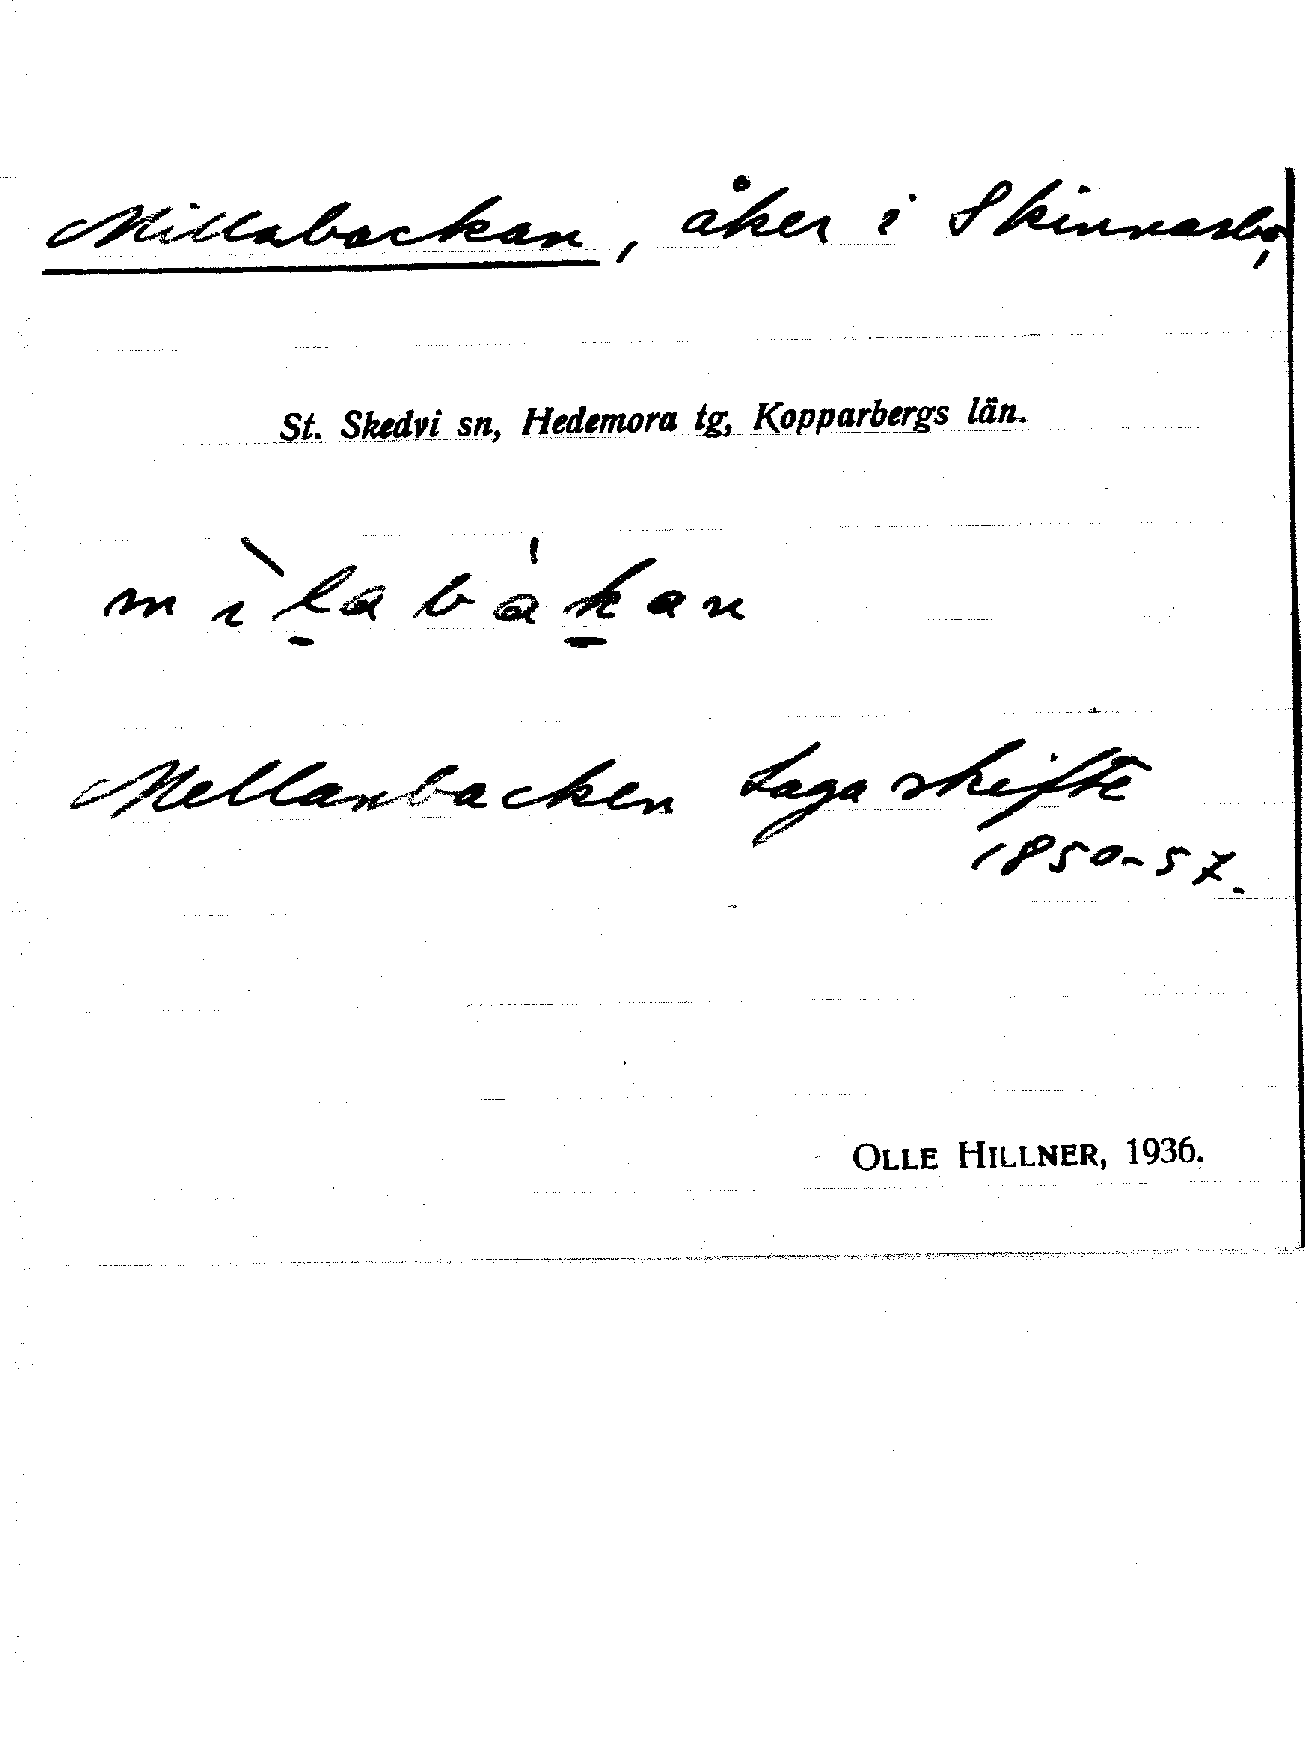 Millabackan, åker i Skinnarbo,
St. Skedvi sn, Hedemora tg, Kopparbergs län.
mìlabákan
Mellanbacken Laga skifte
1850-57.
OLLE HILLNER, 1936.